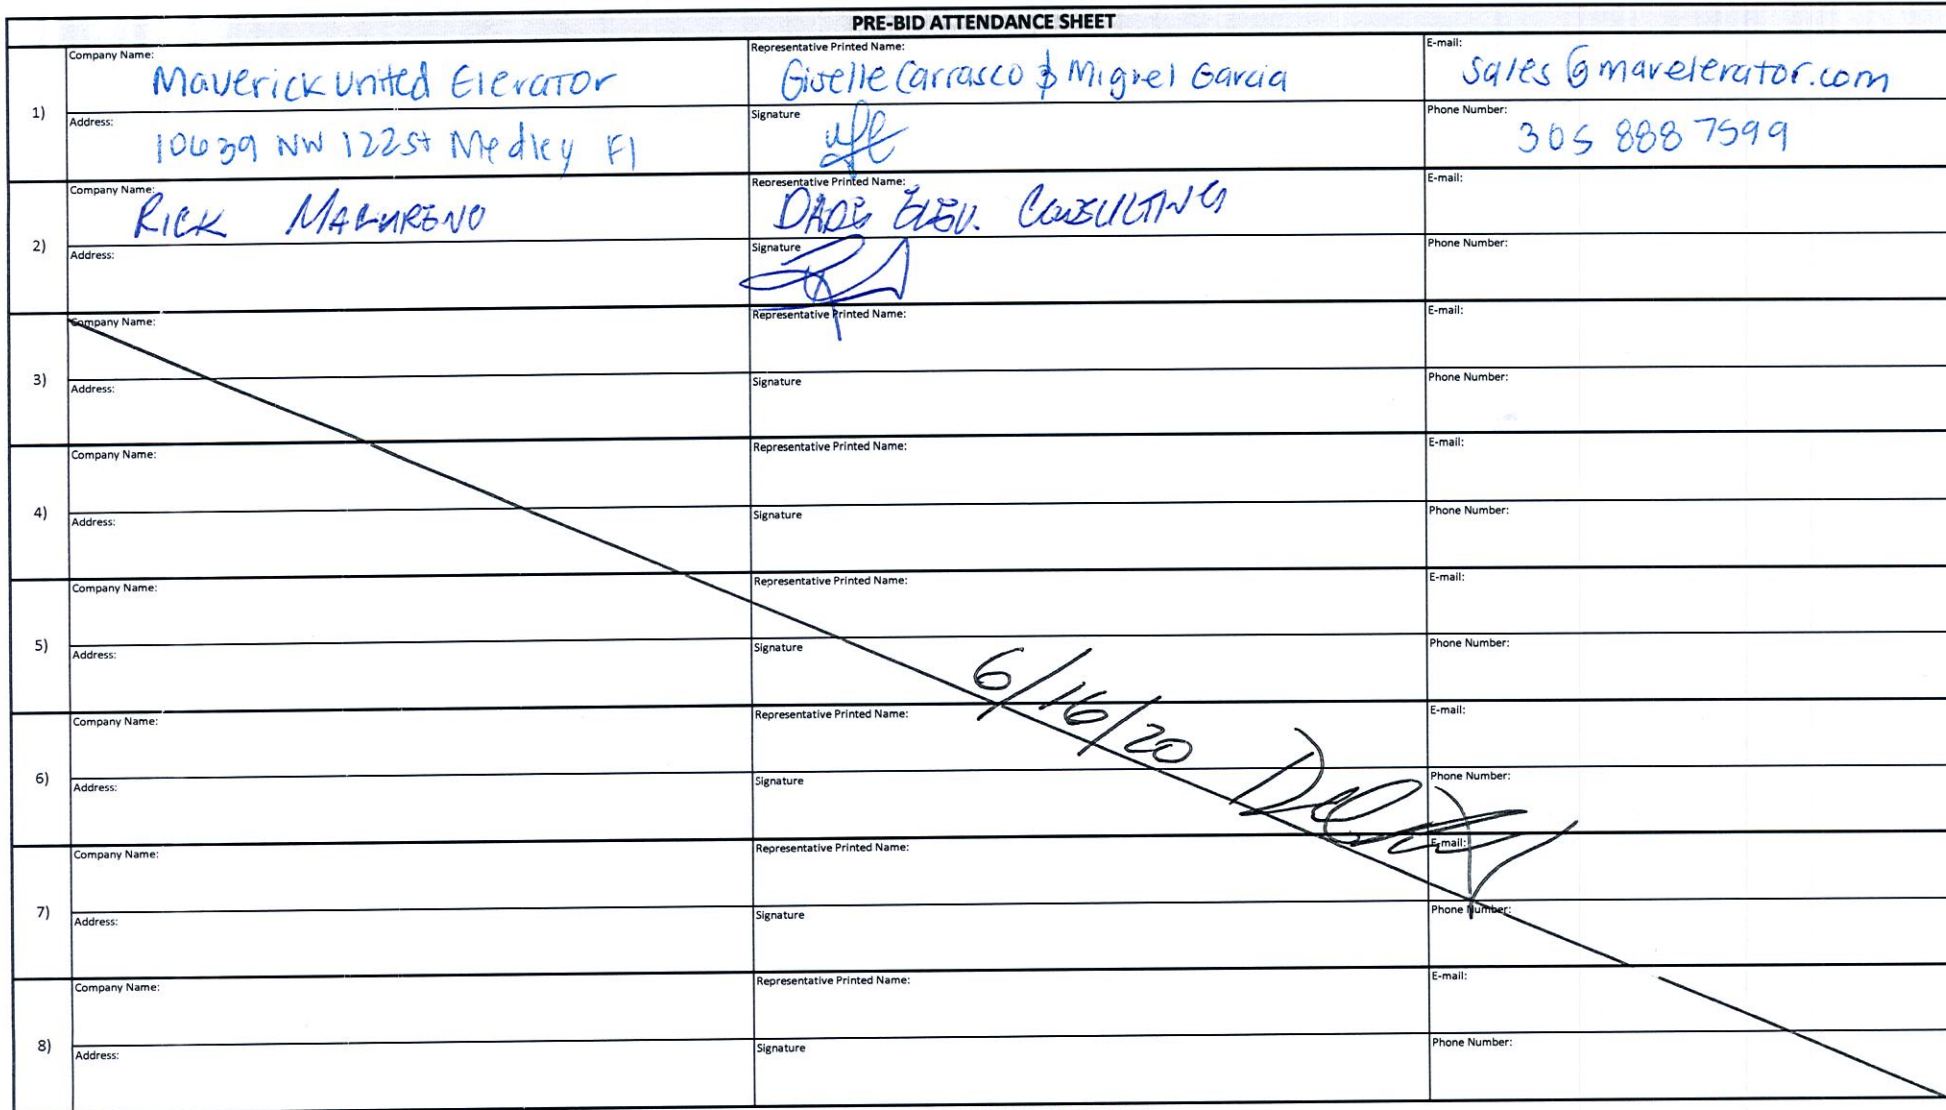 PRE-BID ATTENDANCE SHEET
Company Name: Representative Printed Name: E-mail:
Maverick United Elevator Giselle Carrasco & Miguel Garcia sales@mavelevator.com
1)
Address: Signature Phone Number:
10639 NW 122st Medley Fl 305 888 7599
Company Name: Representative Printed Name: E-mail:
RICK DADE ELEV. CONSULTING
2)
Address: Signature Phone Number:
Company Name: Representative Printed Name: E-mail:
3)
Address: Signature Phone Number:
Company Name: Representative Printed Name: E-mail:
4)
Address: Signature Phone Number:
Company Name: Representative Printed Name: E-mail:
5)
Address: Signature Phone Number:
6/16/20
Company Name: Representative Printed Name: E-mail:
6)
Address: Signature Phone Number:
Company Name: Representative Printed Name: E-mail:
7)
Address: Signature Phone Number:
Company Name: Representative Printed Name: E-mail:
8)
Address: Signature Phone Number: